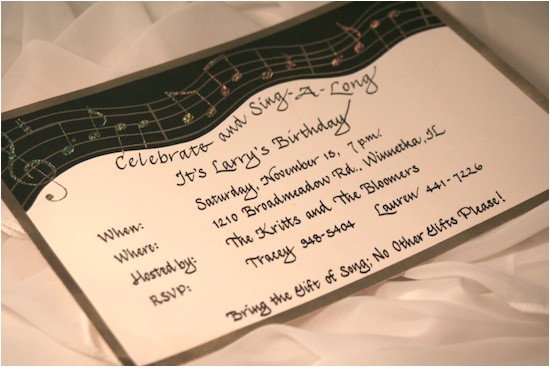 Celebrate and Sing-A-Long
It's Larry's Birthday
When: Saturday, November 15, 7 p.m.
Where: 1210 Broadmeadow Rd., Winnetka, IL
Hosted by: The Kritts and The Bloomers
RSVP: Tracey 948-5404 Lauren 441-7226
Bring the Gift of Song; No Other Gifts Please!